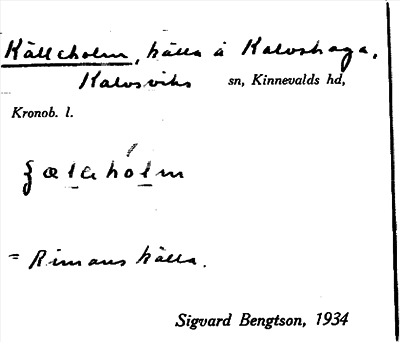 Källeholm, källa å Kalvshaga,
Kalvsviks sn, Kinnevalds hd,
Kronob. l.
ʒæleholm
= Rimans källa.
Sigvard Bengtson, 1934